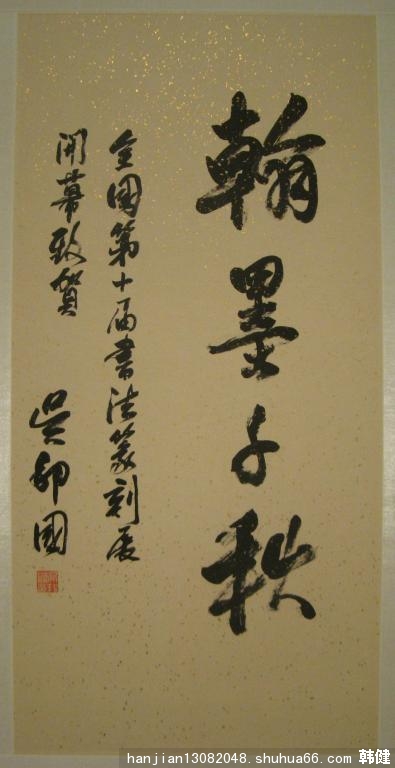 翰墨千秋
全國第十届書法篆刻展
開幕致賀
吴邦國
hanjian13082048.shuhua66.com 韩健